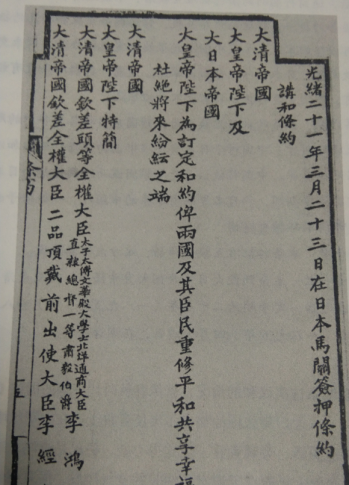 光緒二十一年三月二十三日在日本馬關簽押條約
講和條約
大清帝國
大皇帝陛下及
大日本帝國
大皇帝陛下為訂定和約俾兩國及其臣民重修平和共享幸福
杜絕將來紛紜之端
大清帝國
大皇帝陛下特簡
大清帝國欽差頭等全權大臣太子太傅文華殿大學士北洋通商大臣直隸總督一等肅毅伯爵李鴻
大清帝國欽差全權大臣二品頂戴前出使大臣李經
條約
十五